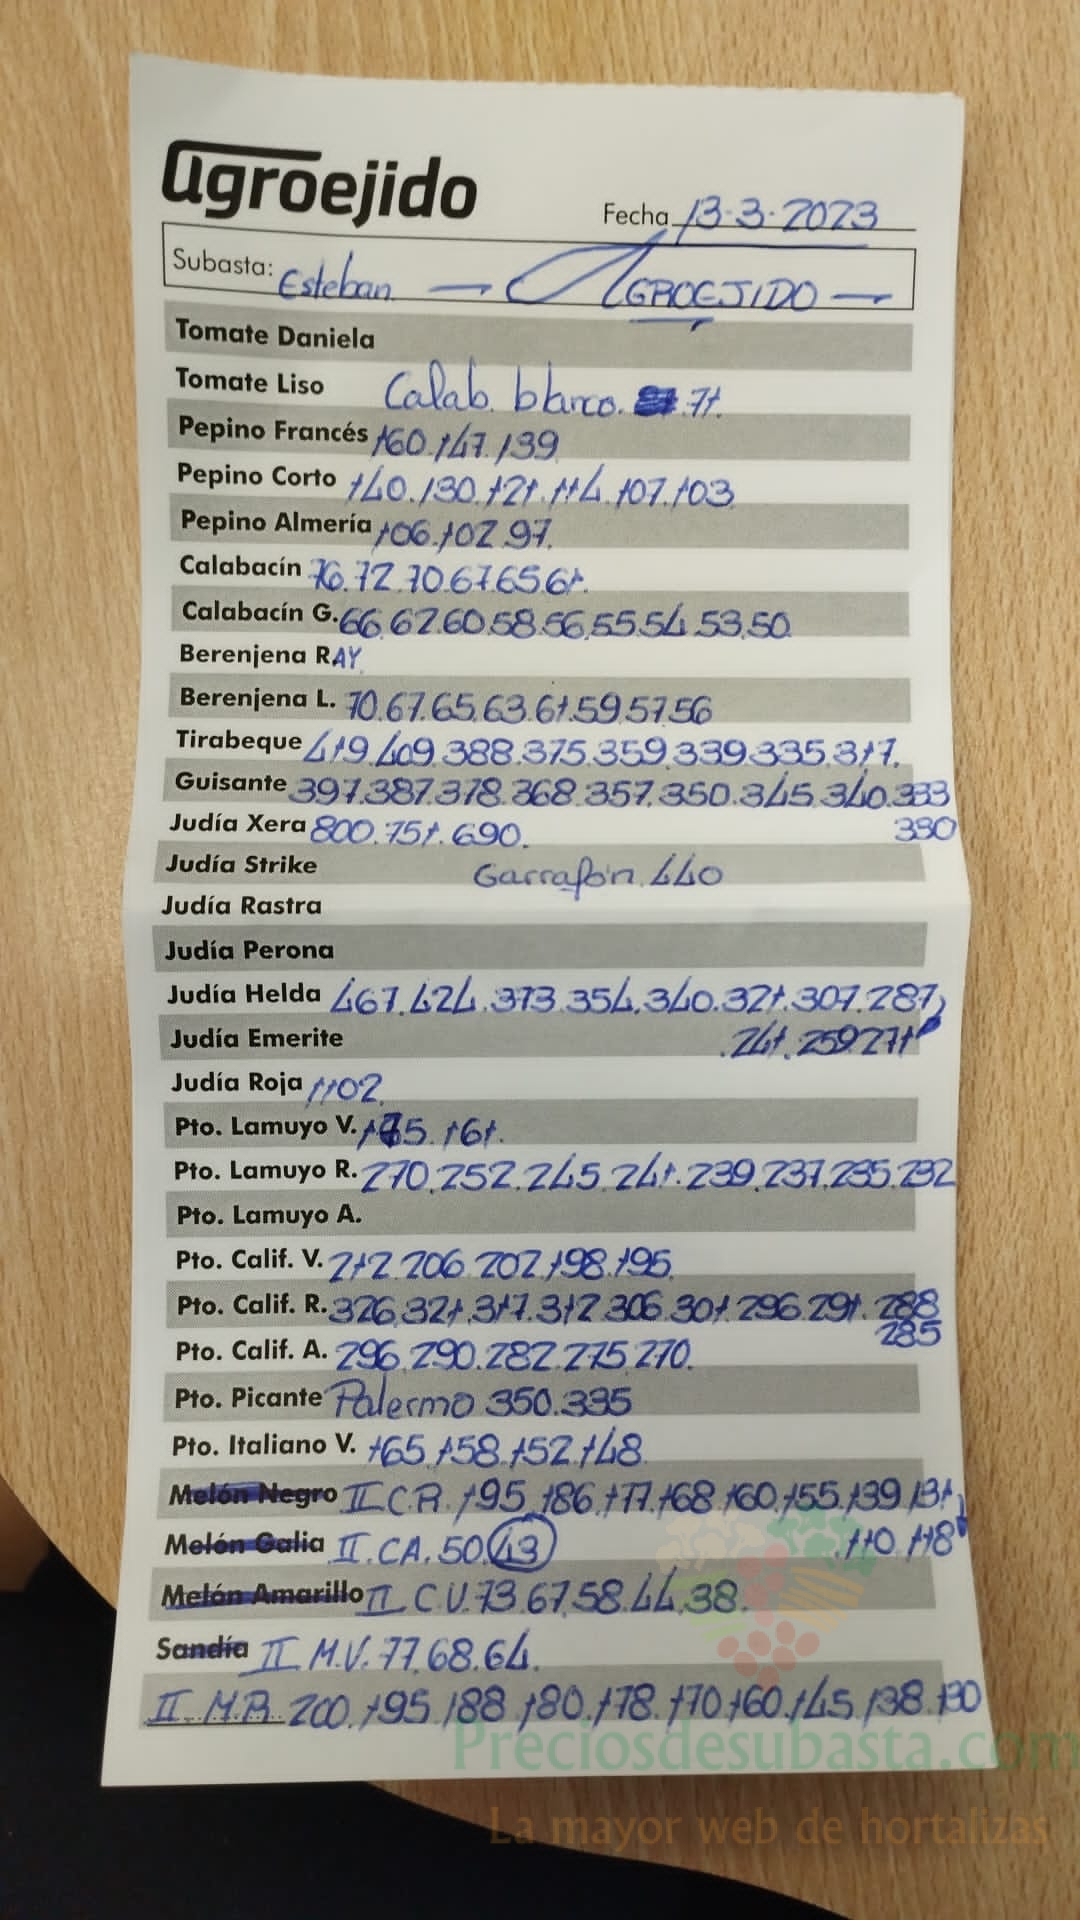 agroejido
Fecha 13-3-2023
Subasta: Esteban — AGROEJIDO —
Tomate Daniela
Tomate Liso Calab. blanco. 71.
Pepino Francés 160.147.139
Pepino Corto 140.130.121.114.107.103
Pepino Almería 106.102.97.
Calabacín 76.72.70.67.65.61.
Calabacín G. 66.62.60.58.56.55.54.53.50.
Berenjena RAY
Berenjena L. 70.67.65.63.61.59.57.56
Tirabeque 419.409.388.375.359.339.335.317.
Guisante 397.387.378.368.357.350.345.340.333
330
Judía Xera 800.751.690.
Judía Strike Garrafón.440
Judía Rastra
Judía Perona
Judía Helda 467.424.373.354.340.321.307.287,
Judía Emerite .241.259.271
Judía Roja 1102.
Pto. Lamuyo V. 175.161.
Pto. Lamuyo R. 270.252.245.241.239.237.235.232
Pto. Lamuyo A.
Pto. Calif. V. 212.206.202.198.195.
Pto. Calif. R. 326.321.317.312.306.301.296.291.288
285
Pto. Calif. A. 296.290.282.275.270.
Pto. Picante Palermo 350.335
Pto. Italiano V. 165.158.152.148.
Melón Negro II C.R. 195.186.177.168.160.155.139.131,
Melón Galia II.CA.50.43 .110.118
Melón Amarillo II C.V.73.67.58.44.38.
Sandía II M.V.77.68.64.
II M.R. 200.195.188.180.178.170.160.145.138.130
Preciosdesubasta.com
La mayor web de hortalizas